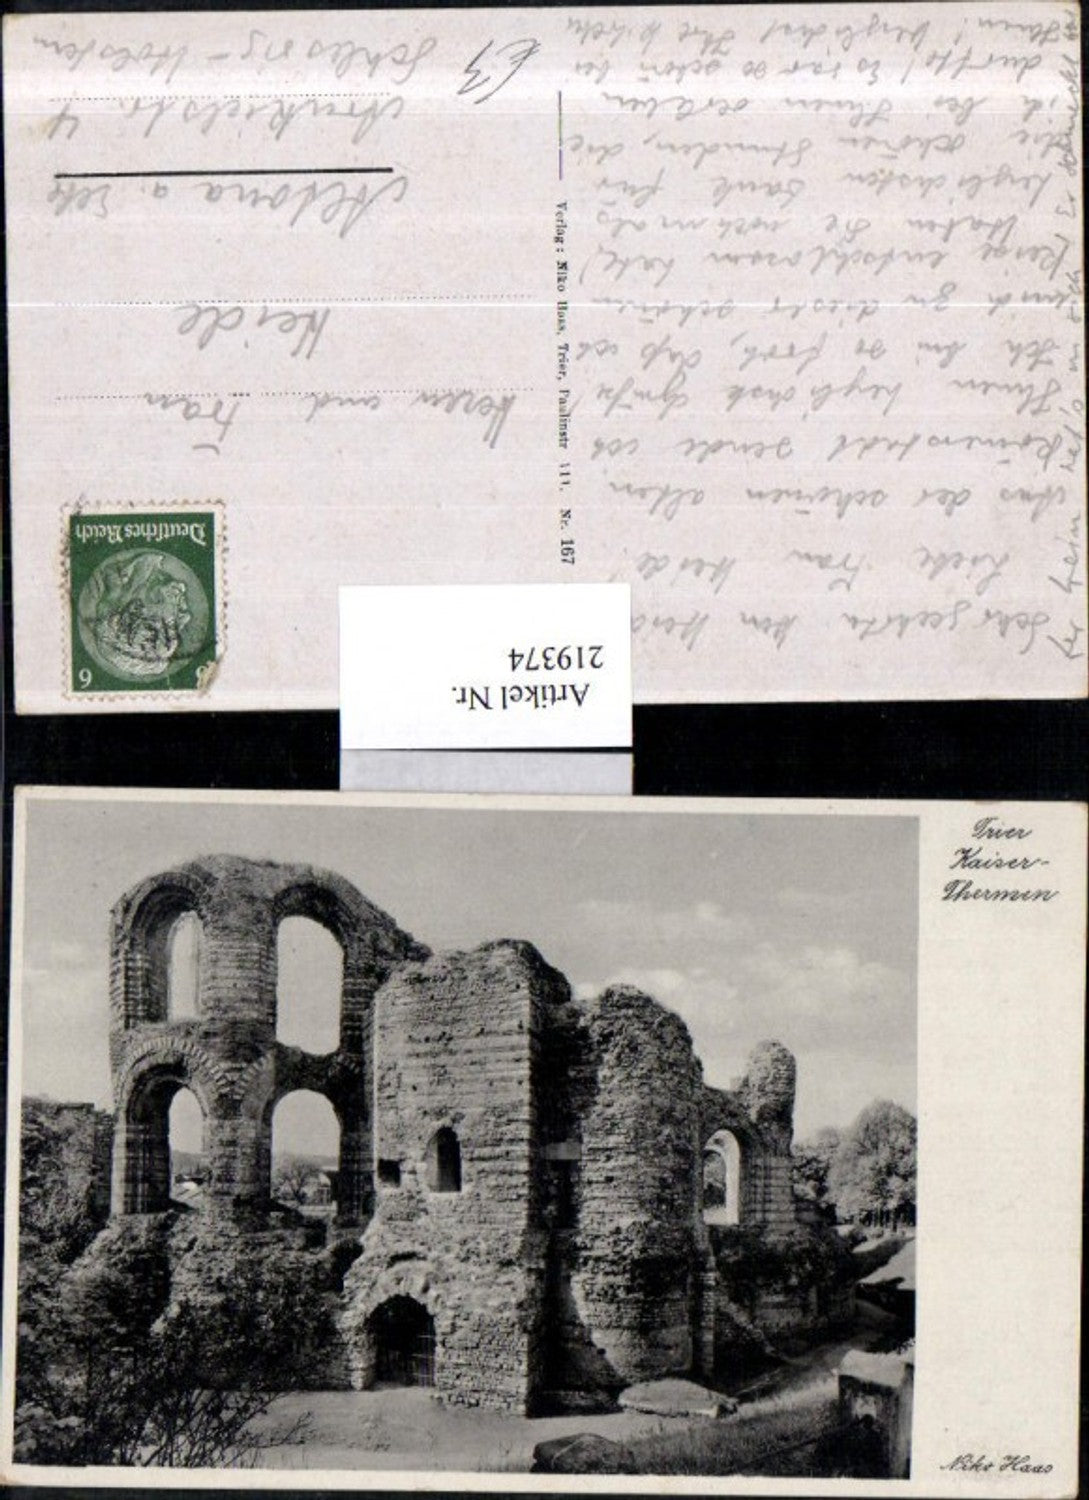 Sehr geehrter Herr Heide,
Liebe Frau Heide!
Aus der schönen alten
Römerstadt sende ich
Ihnen herzlichste Grüße!
Ich bin so froh, daß ich
mich zu dieser schönen
Reise entschlossen habe,
Haben Sie nochmals
herzlichsten Dank für
die schönen Stunden, die
ich bei Ihnen erleben
durfte! Es war so schön bei
Ihnen! Herzlichst Ihre
Verlag: Niko Haas, Trier, Paulinstr 111. Nr. 167
Deutsches Reich
6
Herrn und Frau
Heide
Altona a. Elbe
4
Schleswig-Holstein
€3
Artikel Nr.
219374
Trier
Kaiser-
Thermen
Niko Haas